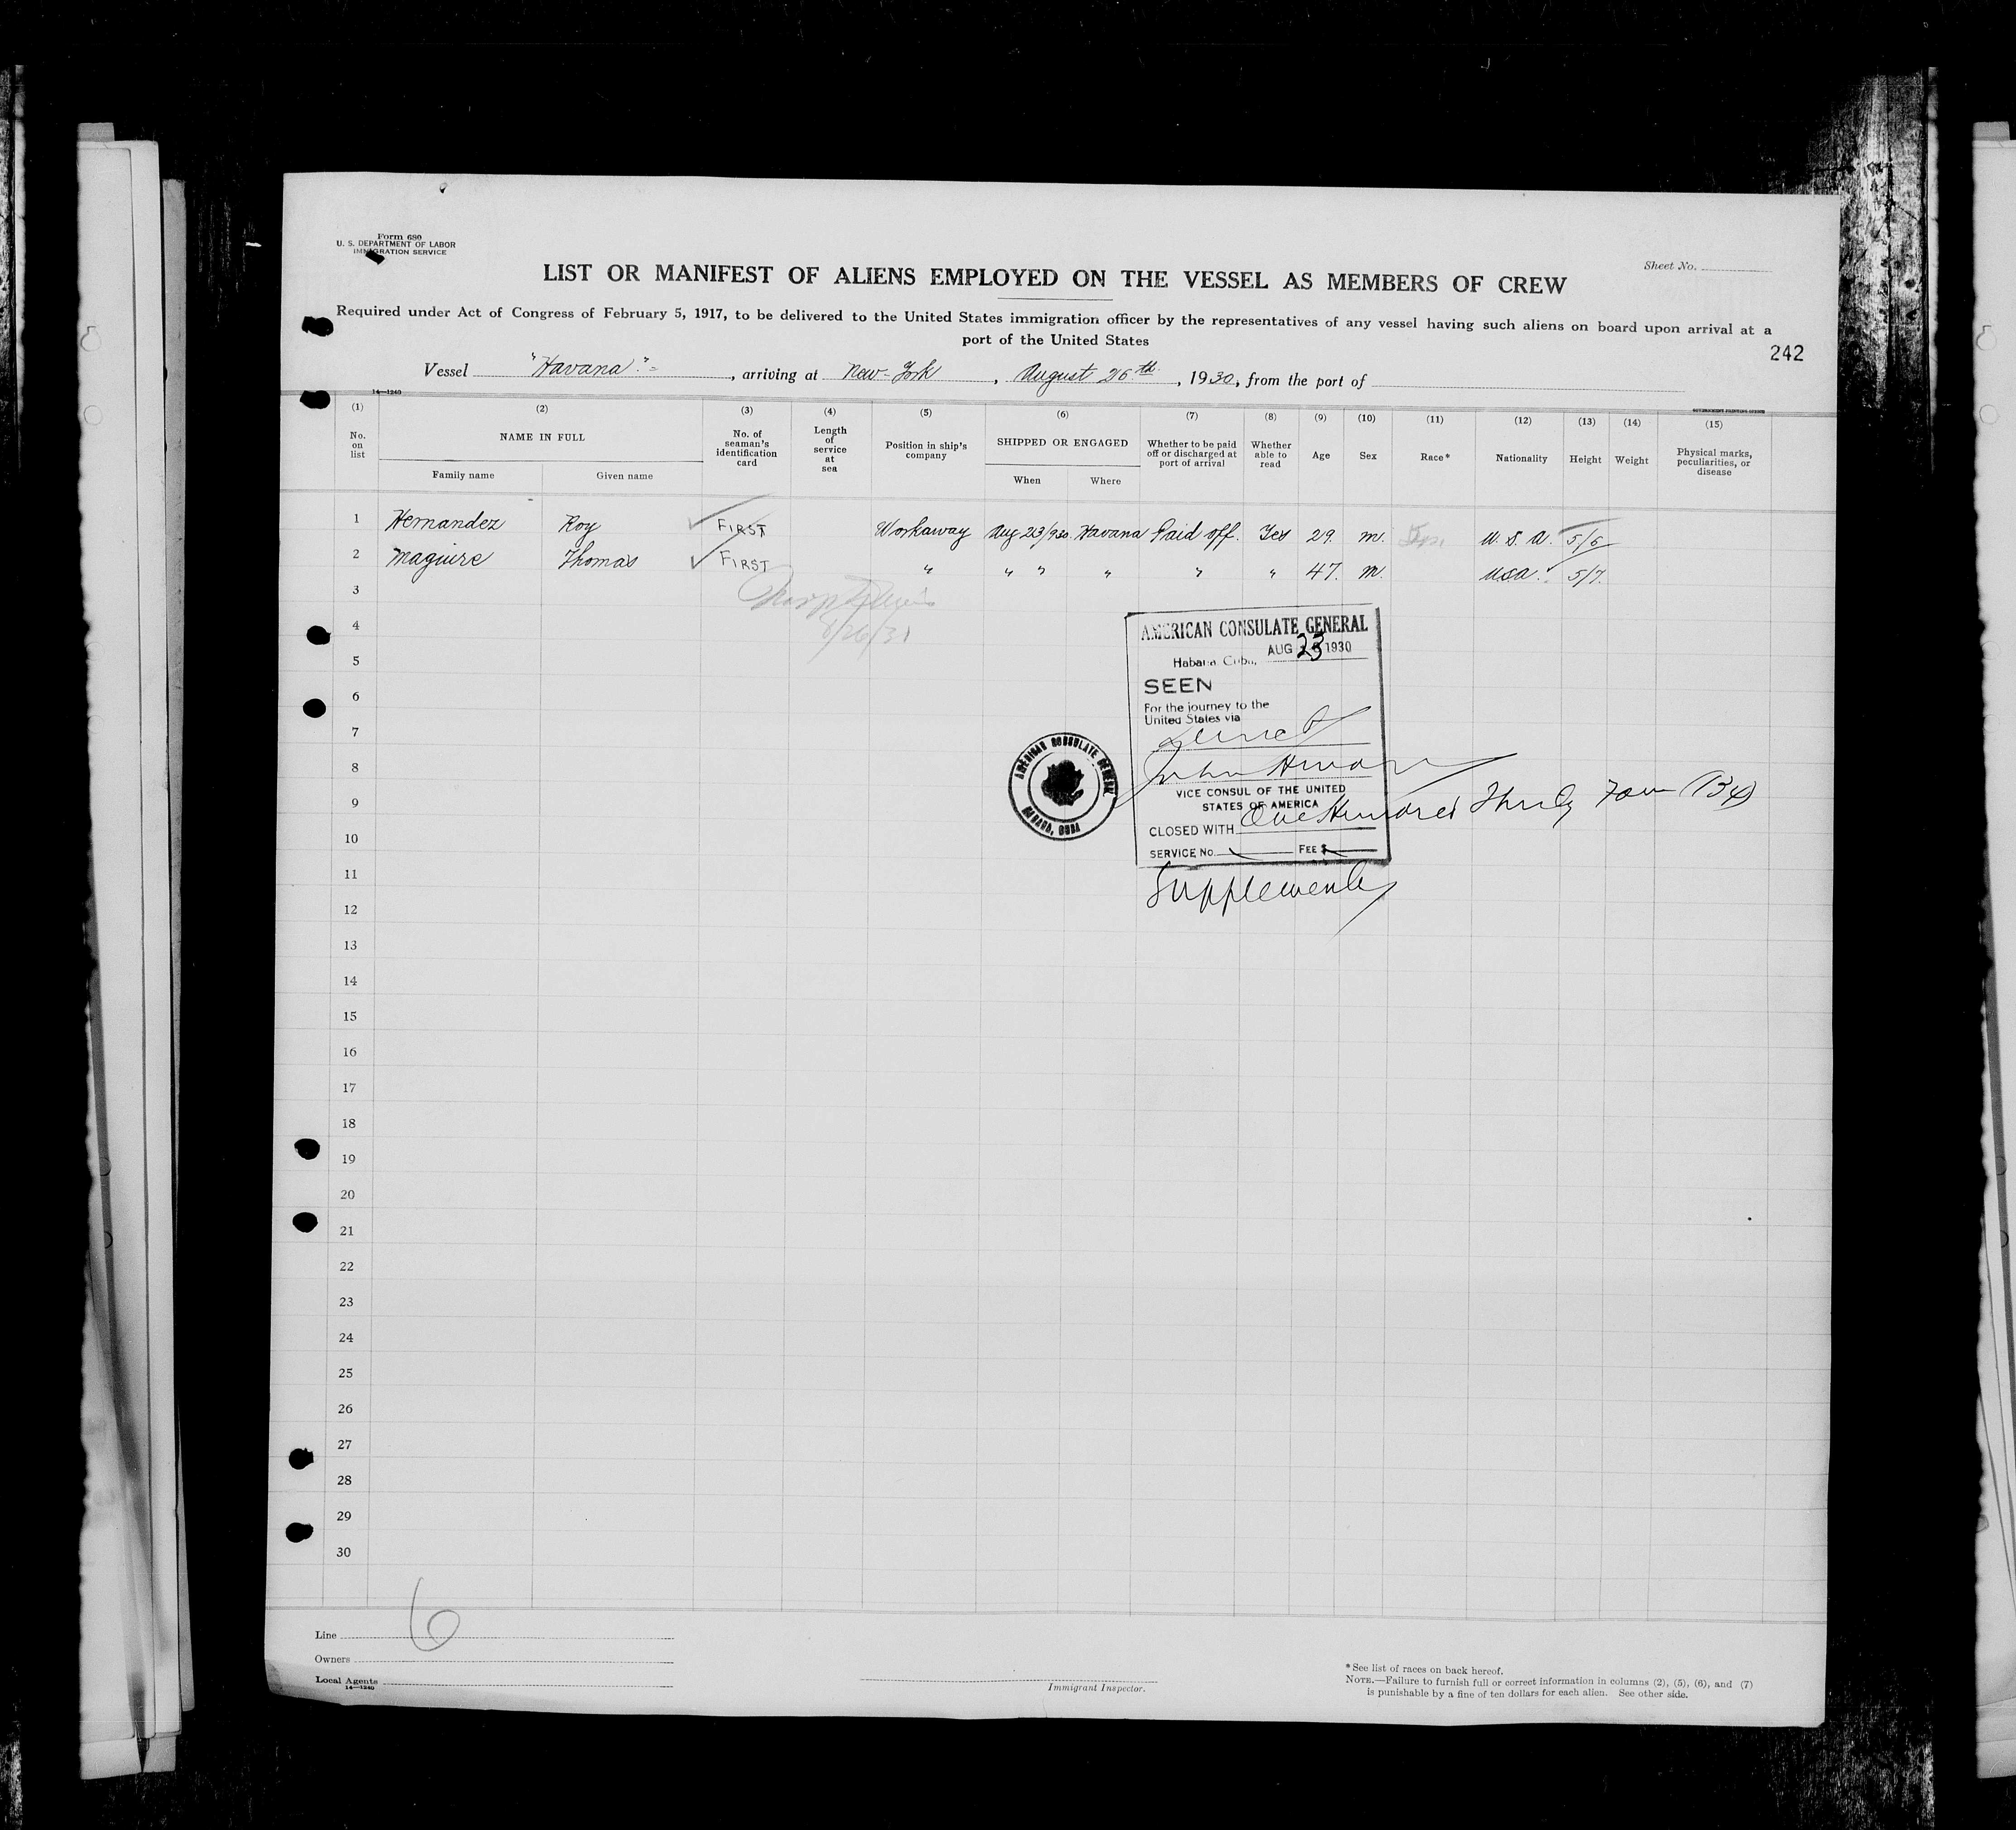 Form 680
U. S. DEPARTMENT OF LABOR
IMMIGRATION SERVICE
Sheet No.
LIST OR MANIFEST OF ALIENS EMPLOYED ON THE VESSEL AS MEMBERS OF CREW
Required under Act of Congress of February 5, 1917, to be delivered to the United States immigration officer by the representatives of any vessel having such aliens on board upon arrival at a
port of the United States
242
Vessel "Havana", arriving at New-York, August 26th, 1930, from the port of
14—1240
GOVERNMENT PRINTING OFFICE
(1) (2) (3) (4) (5) (6) (7) (8) (9) (10) (11) (12) (13) (14) (15)
No. on list NAME IN FULL Family name Given name No. of seaman's identification card Length of service at sea Position in ship's company SHIPPED OR ENGAGED When Where Whether to be paid off or discharged at port of arrival Whether able to read Age Sex Race* Nationality Height Weight Physical marks, peculiarities, or disease
1 Hernandez Roy FIRST Workaway Aug 23/930. Havana Paid off. Yes 29 m. U. S. A. 5/6
2 Maguire Thomas FIRST " " " " " " 47. m. USA. 5/7.
3
8/26/31
4
5
6
7
8
9
10
11
12
13
14
15
16
17
18
19
20
21
22
23
24
25
26
27
28
29
30
AMERICAN CONSULATE GENERAL
AUG 23 1930
Habana, Cuba,
SEEN
For the journey to the
United States via
direct
VICE CONSUL OF THE UNITED
STATES OF AMERICA
CLOSED WITH One Hundred Thirty Four (134)
SERVICE No. FEE $
AMERICAN CONSULATE GENERAL
HABANA, CUBA
6
Line
Owners
Local Agents
14—1240
Immigrant Inspector.
* See list of races on back hereof.
NOTE.—Failure to furnish full or correct information in columns (2), (5), (6), and (7)
is punishable by a fine of ten dollars for each alien. See other side.